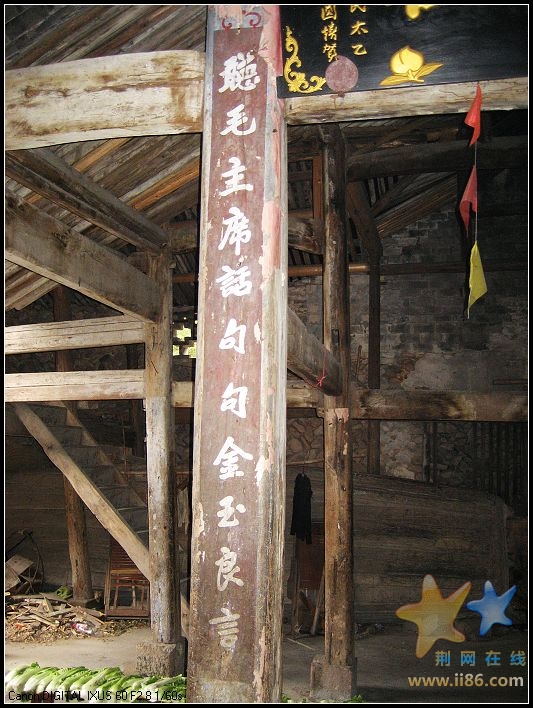 太乙
聽毛主席話句句金玉良言
荆网在线
www.ii86.com
Canon DIGITAL IXUS 60 F2.8 1/60s